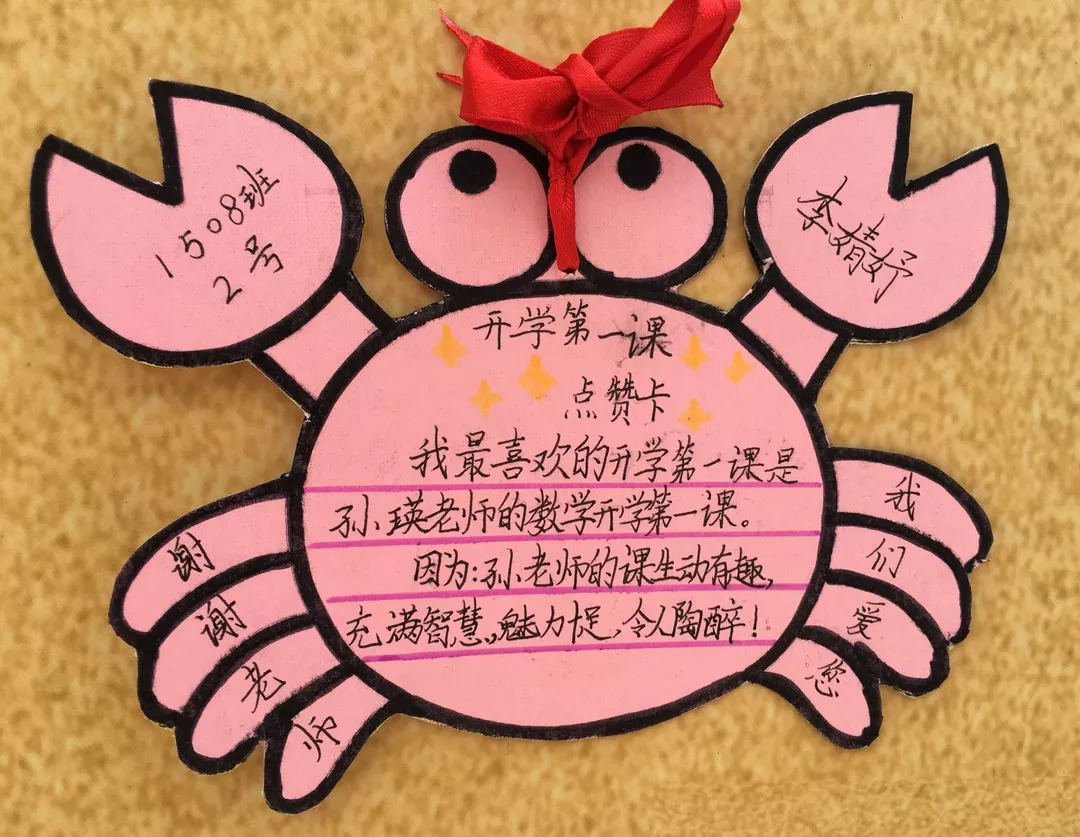 1508班
2号
李婧妤
开学第一课
点赞卡
我最喜欢的开学第一课是
孙瑛老师的数学开学第一课。
因为:孙老师的课生动有趣,
充满智慧,魅力十足,令人陶醉!
谢
谢
老
师
我
们
爱
您